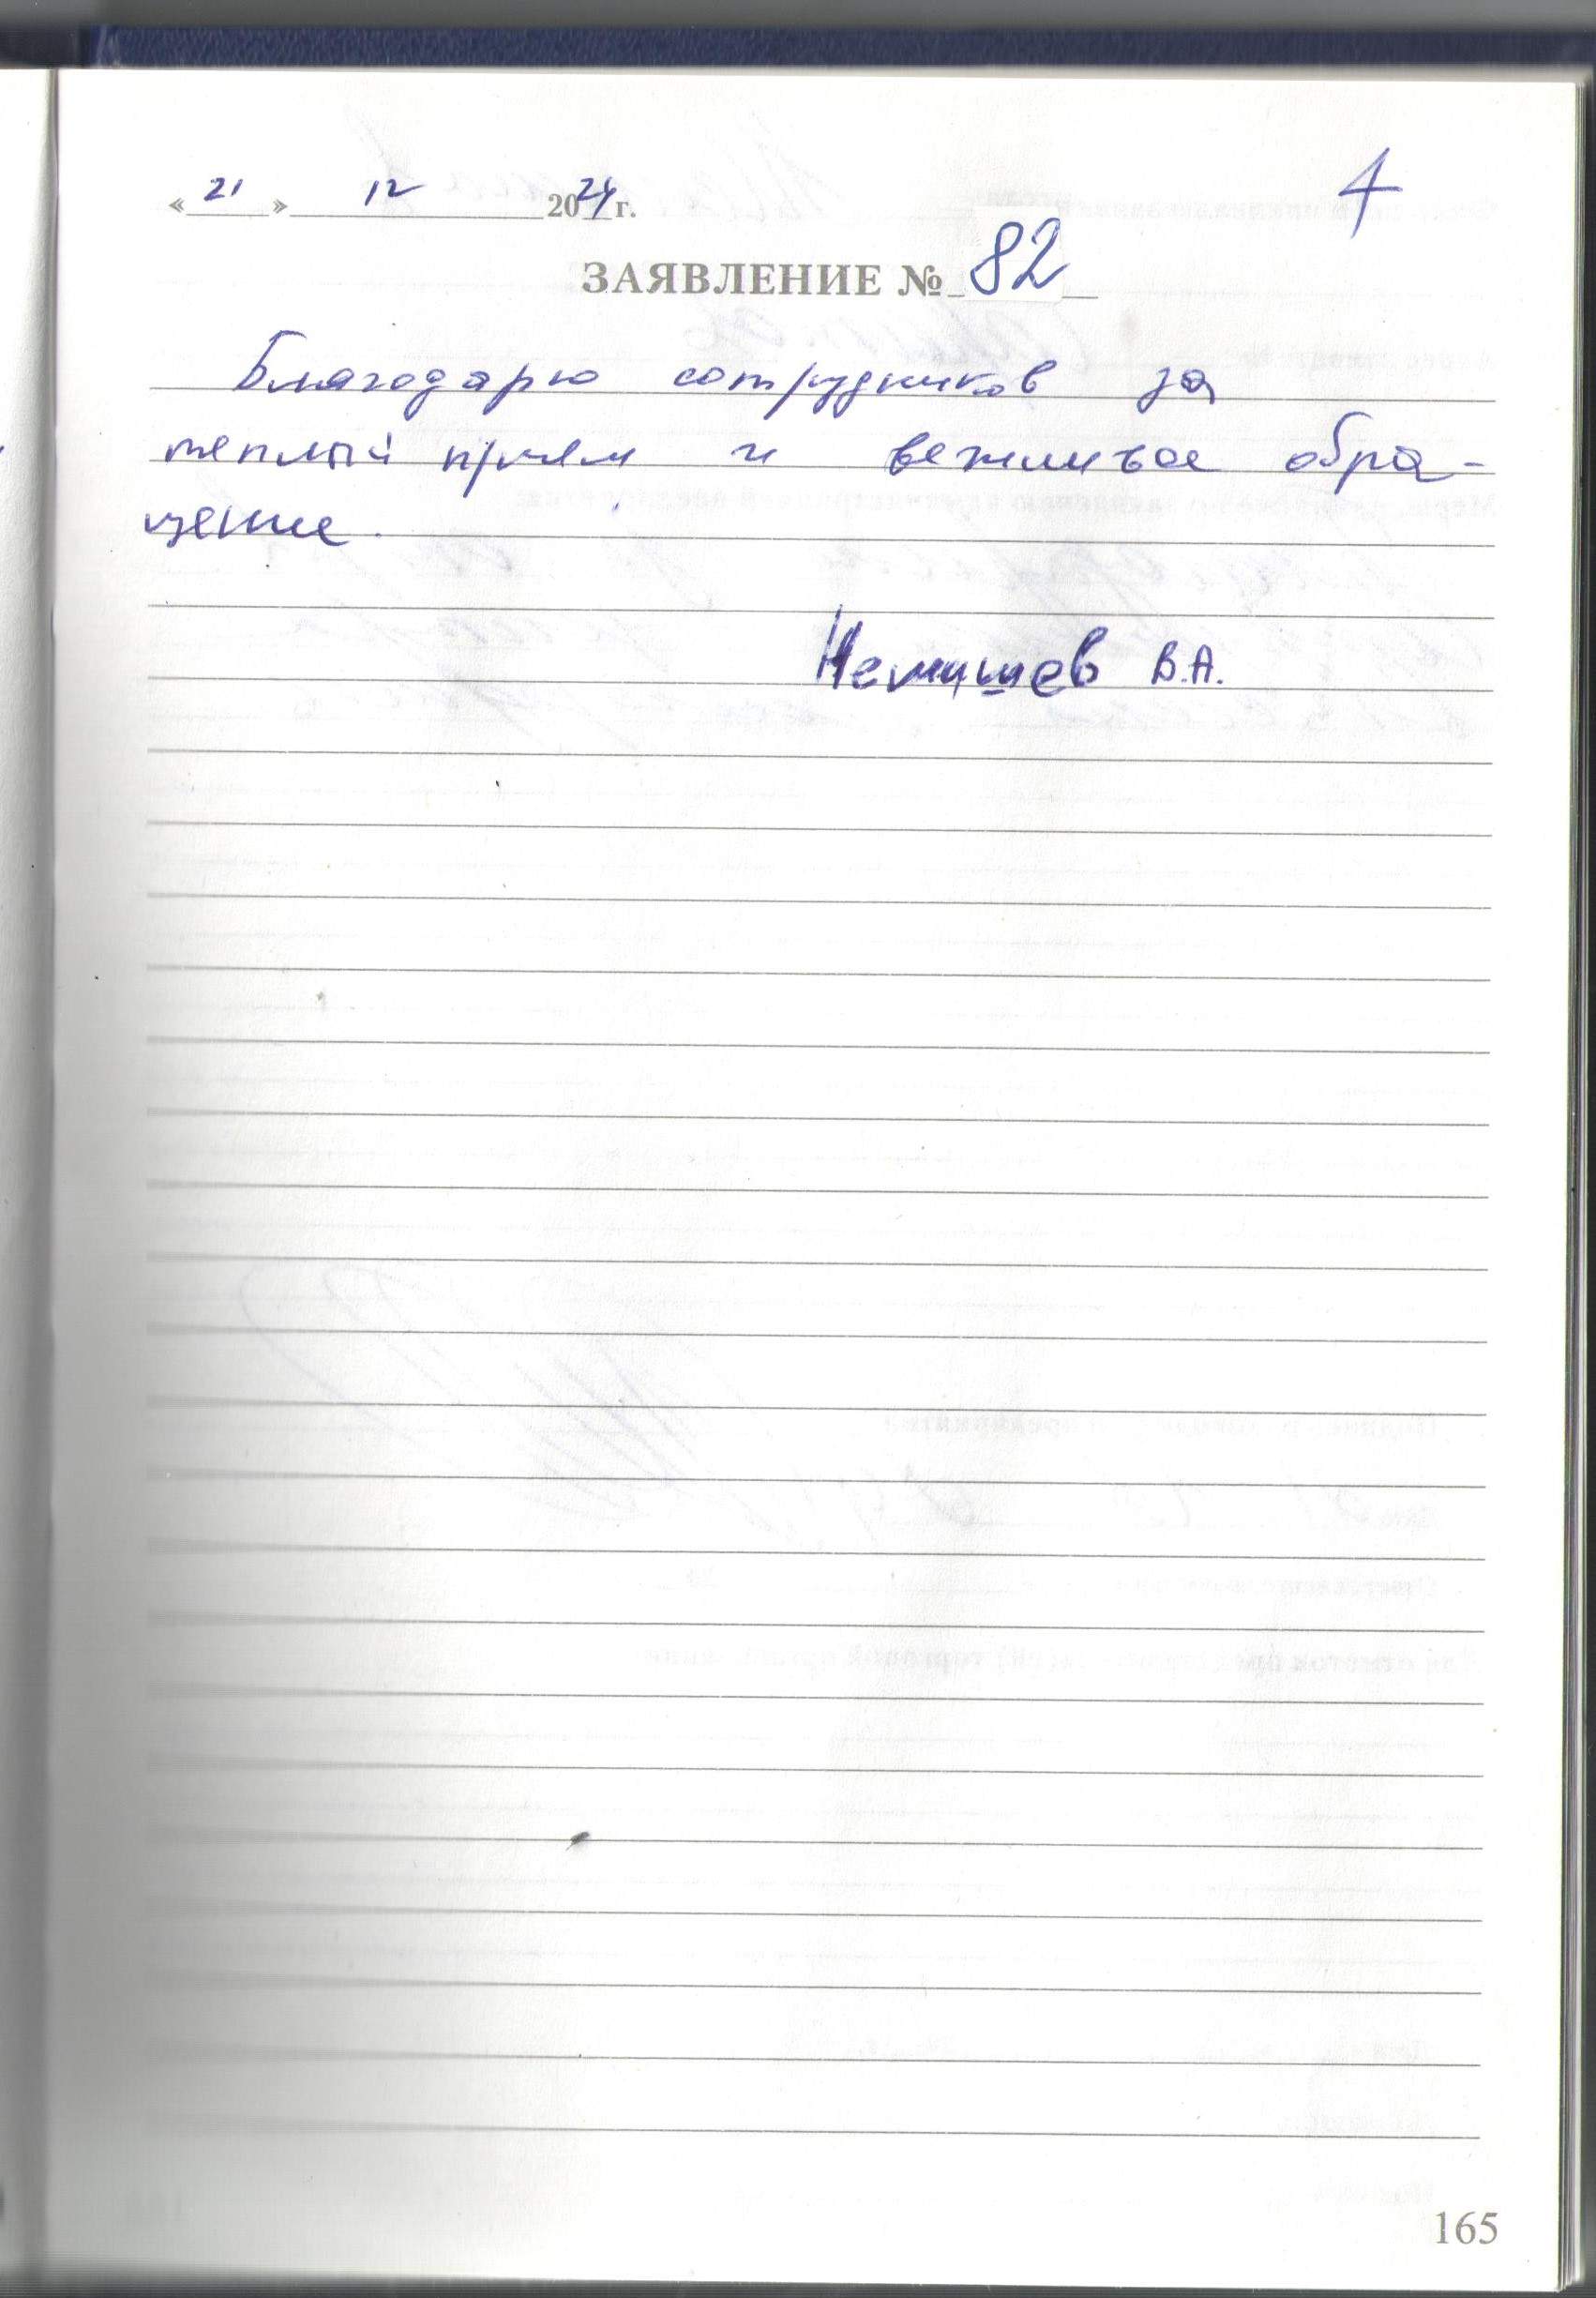 « 21 » 12 2024 г.
4
ЗАЯВЛЕНИЕ № 82
Благодарю сотрудников за
теплый прием и вежливое обра-
щение.
В.А.
165